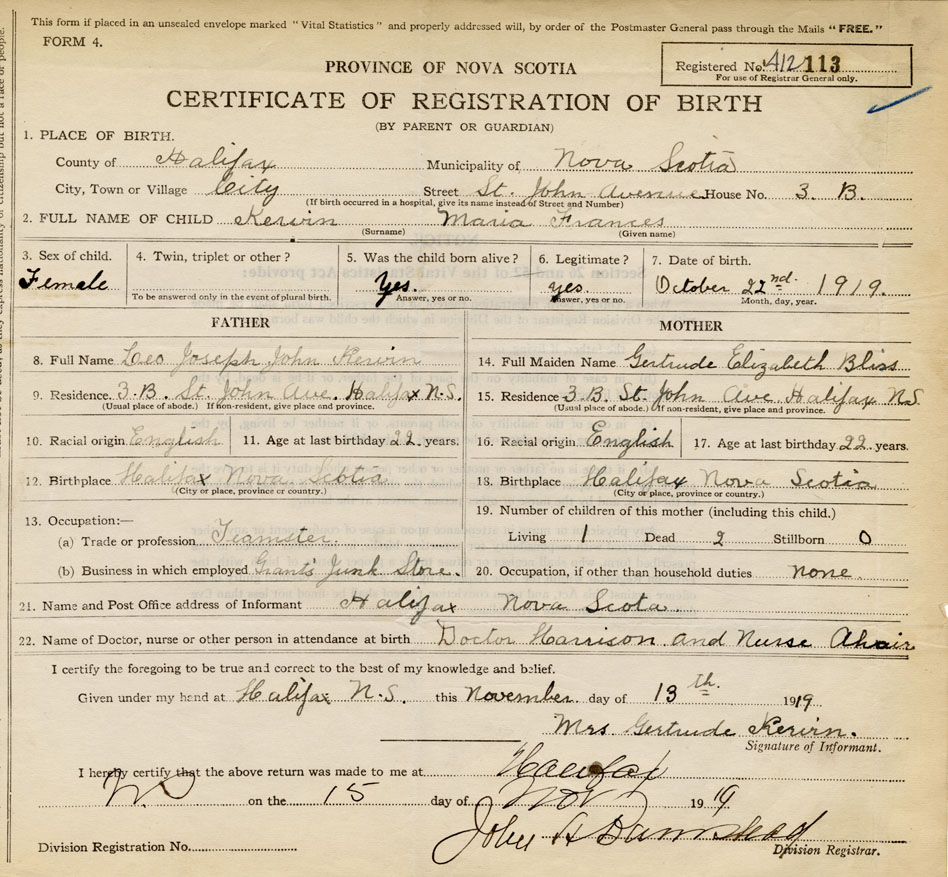 This form if placed in an unsealed envelope marked "Vital Statistics" and properly addressed will, by order of the Postmaster General pass through the Mails "FREE."
FORM 4.
Registered No. A12 113
For use of Registrar General only.
PROVINCE OF NOVA SCOTIA
CERTIFICATE OF REGISTRATION OF BIRTH
(BY PARENT OR GUARDIAN)
1. PLACE OF BIRTH.
County of Halifax Municipality of Nova Scotia
City, Town or Village City Street St. John Avenue House No. 3. B.
(If birth occurred in a hospital, give its name instead of Street and Number)
2. FULL NAME OF CHILD Kerwin Maria Frances
(Surname) (Given name)
3. Sex of child. 4. Twin, triplet or other? 5. Was the child born alive? 6. Legitimate? 7. Date of birth.
Female Yes. yes. October 22nd. 1919.
To be answered only in the event of plural birth. Answer, yes or no. Answer, yes or no. Month, day, year.
FATHER MOTHER
8. Full Name Leo Joseph John Kerwin 14. Full Maiden Name Gertrude Elizabeth Bliss
9. Residence. 3.B. St. John Ave. Halifax N.S. 15. Residence 3.B. St. John Ave Halifax N.S
(Usual place of abode.) If non-resident, give place and province. (Usual place of abode.) If non-resident, give place and province.
10. Racial origin English 11. Age at last birthday 22. years. 16. Racial origin English 17. Age at last birthday 22. years.
12. Birthplace Halifax Nova Scotia 18. Birthplace Halifax Nova Scotia
(City or place, province or country.) (City or place, province or country.)
13. Occupation:— 19. Number of children of this mother (including this child.)
(a) Trade or profession Teamster. Living 1 Dead 2 Stillborn 0
(b) Business in which employed Grants Junk Store. 20. Occupation, if other than household duties none.
21. Name and Post Office address of Informant Halifax Nova Scota.
22. Name of Doctor, nurse or other person in attendance at birth Doctor Harrison and Nurse
I certify the foregoing to be true and correct to the best of my knowledge and belief.
Given under my hand at Halifax N.S. this November. day of 13th. 1919.
Mrs Gertrude Kerwin.
Signature of Informant.
I hereby certify that the above return was made to me at Halifax
on the 15 day of Nov 1919.
John A
Division Registration No. Division Registrar.